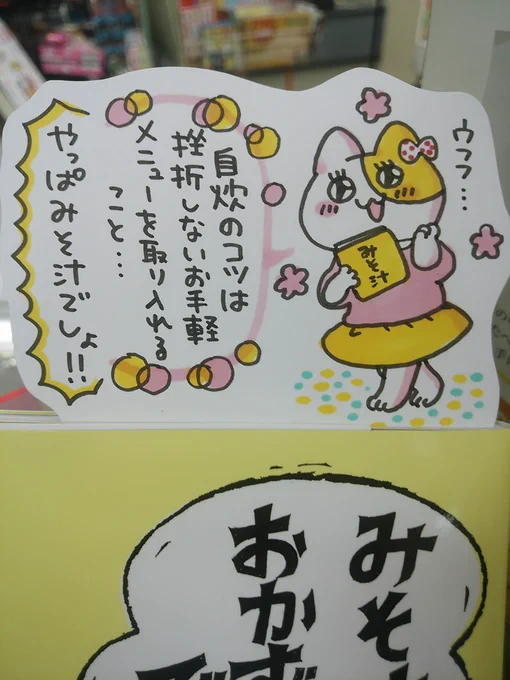 ウフフ…
みそ汁
自炊のコツは
挫折しないお手軽
メニューを取り入れる
こと…
やっぱみそ汁でしょ!!
みそ
おかず